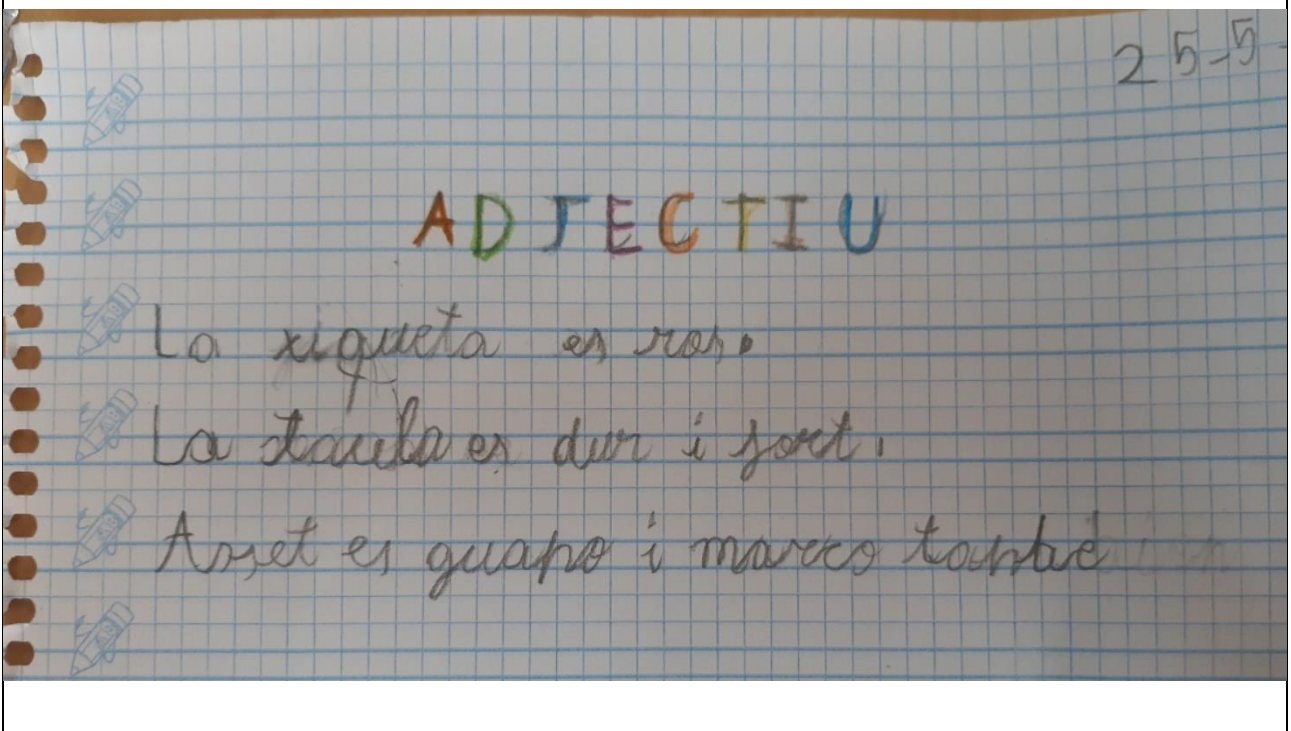 25-5-
ADJECTIU
La xiqueta es ros.
La taula es dur i fort.
es guapo i marco també